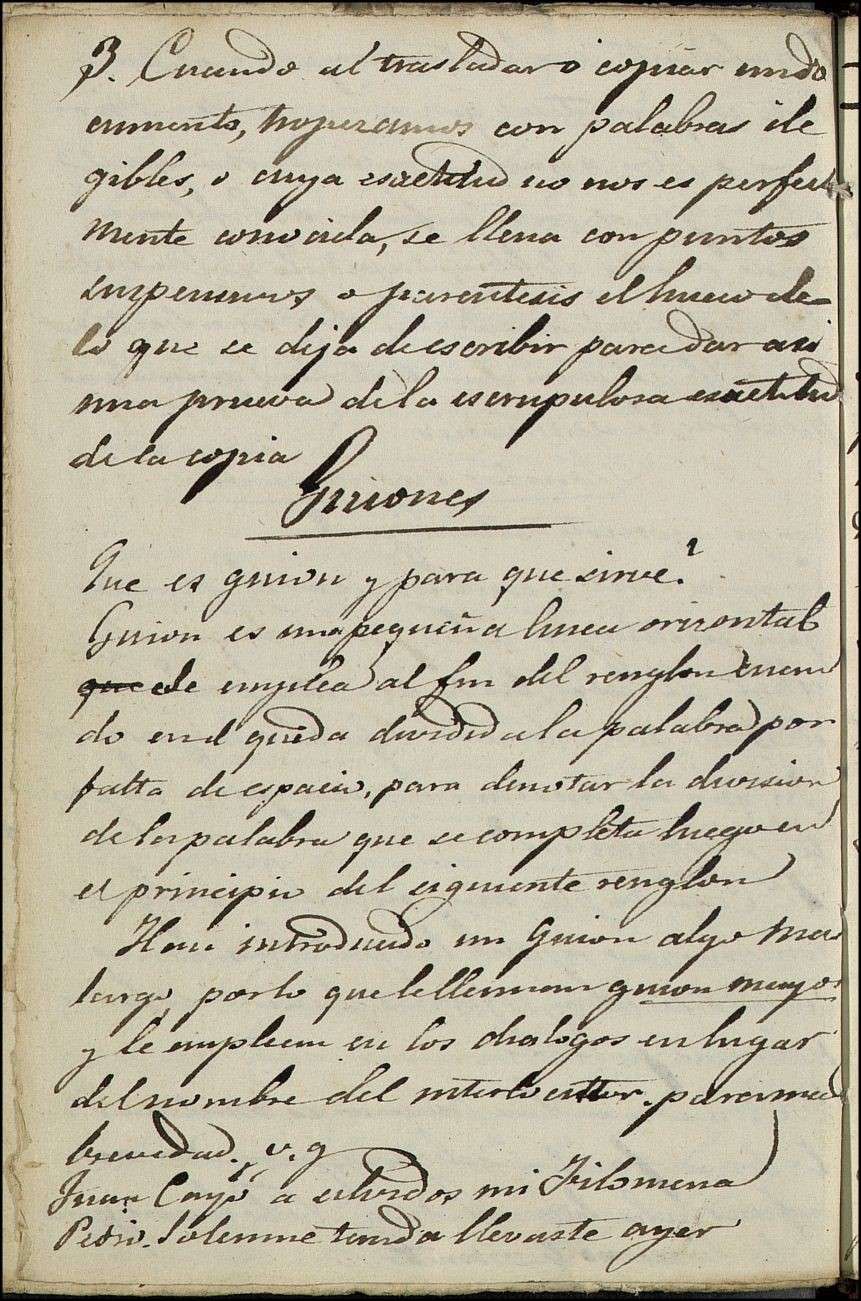 3. Cuando al trasladar o copiar un do
cumento, tropezamos con palabras ile
gibles, o cuya esactitud no nos es perfecta
mente conocida, se llena con puntos
suspensivos o parentesis el hueco de
lo que se deja de escribir para dar asi
una prueva de la escrupulosa esactitud
de la copia
Guiones
Que es guion y para que sirve?
Guion es una pequeña linea orizontal
que se emplea al fin del renglon cuan
do en el queda dividida la palabra por
falta de espacio, para denotar la division
de la palabra que se completa luego en
el principio del siguiente renglon
Han introducido un Guion algo mas
largo, por lo que le llaman guion mayor
y le emplean en los dialogos en lugar
del nombre del interlocutor. para mas
brevedad. v. g
Juan Cayó a mi Filomena
Pedro. Solemne tunda llevaste ayer